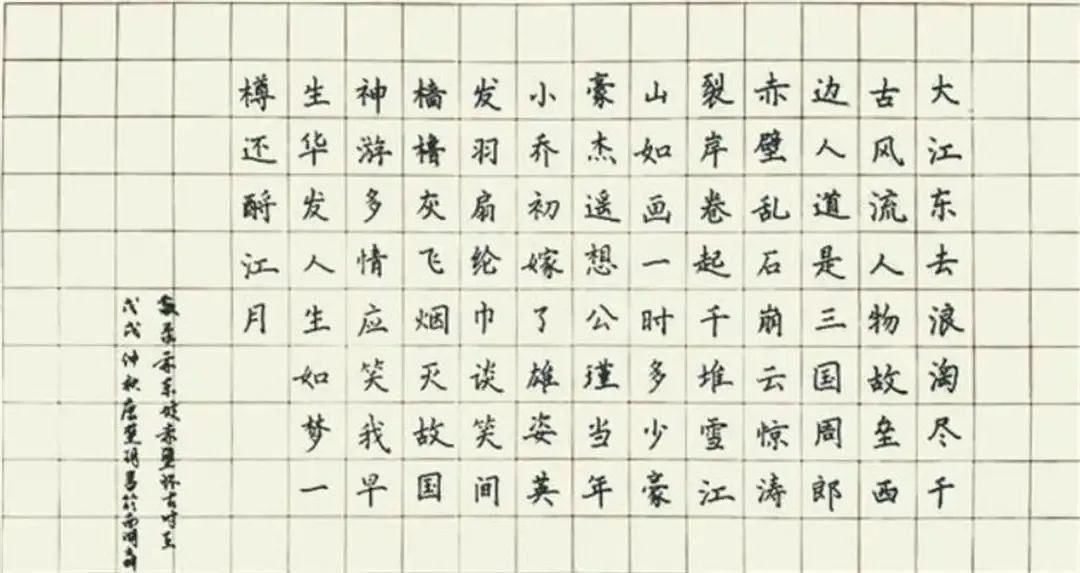 大江东去浪淘尽千
古风流人物故垒西
边人道是三国周郎
赤壁乱石崩云惊涛
裂岸卷起千堆雪江
山如画一时多少豪
豪杰遥想公瑾当年
小乔初嫁了雄姿英
发羽扇纶巾谈笑间
樯橹灰飞烟灭故国
神游多情应笑我早
生华发人生如梦一
樽还酹江月
赤壁怀古时
戊戌仲秋